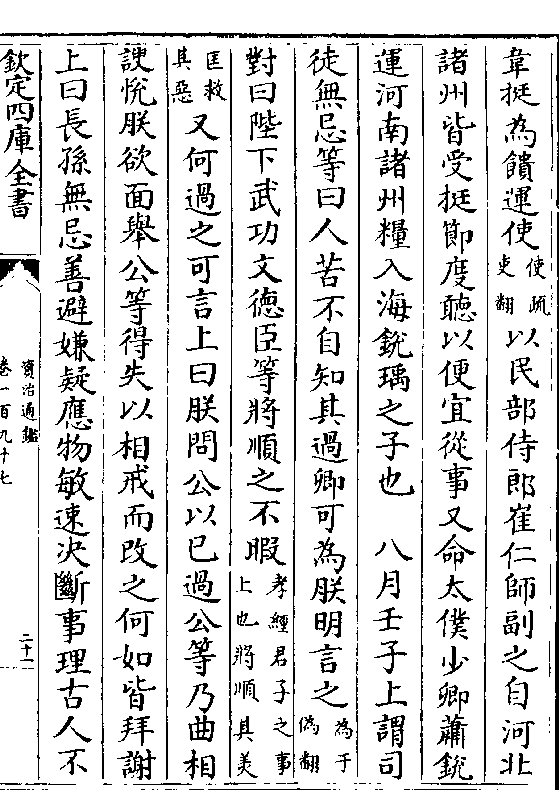 韋挺為饋運使使疏吏翻以民部侍郎崔仁師副之自河北
諸州皆受挺節度聽以便宜從事又命太僕少卿蕭銳
運河南諸州糧入海銳瑀之子也　八月壬子上謂司
徒無忌等曰人苦不自知其過卿可為朕明言之為于偽翻
對曰陛下武功文德臣等將順之不暇孝經君子之事上也將順其美
匡救其惡又何過之可言上曰朕問公以已過公等乃曲相
諛悅朕欲面舉公等得失以相戒而改之何如皆拜謝
上曰長孫無忌善避嫌疑應物敏速決斷事理古人不
欽定四庫全書
資治通鑑
卷一百九十七
二十一